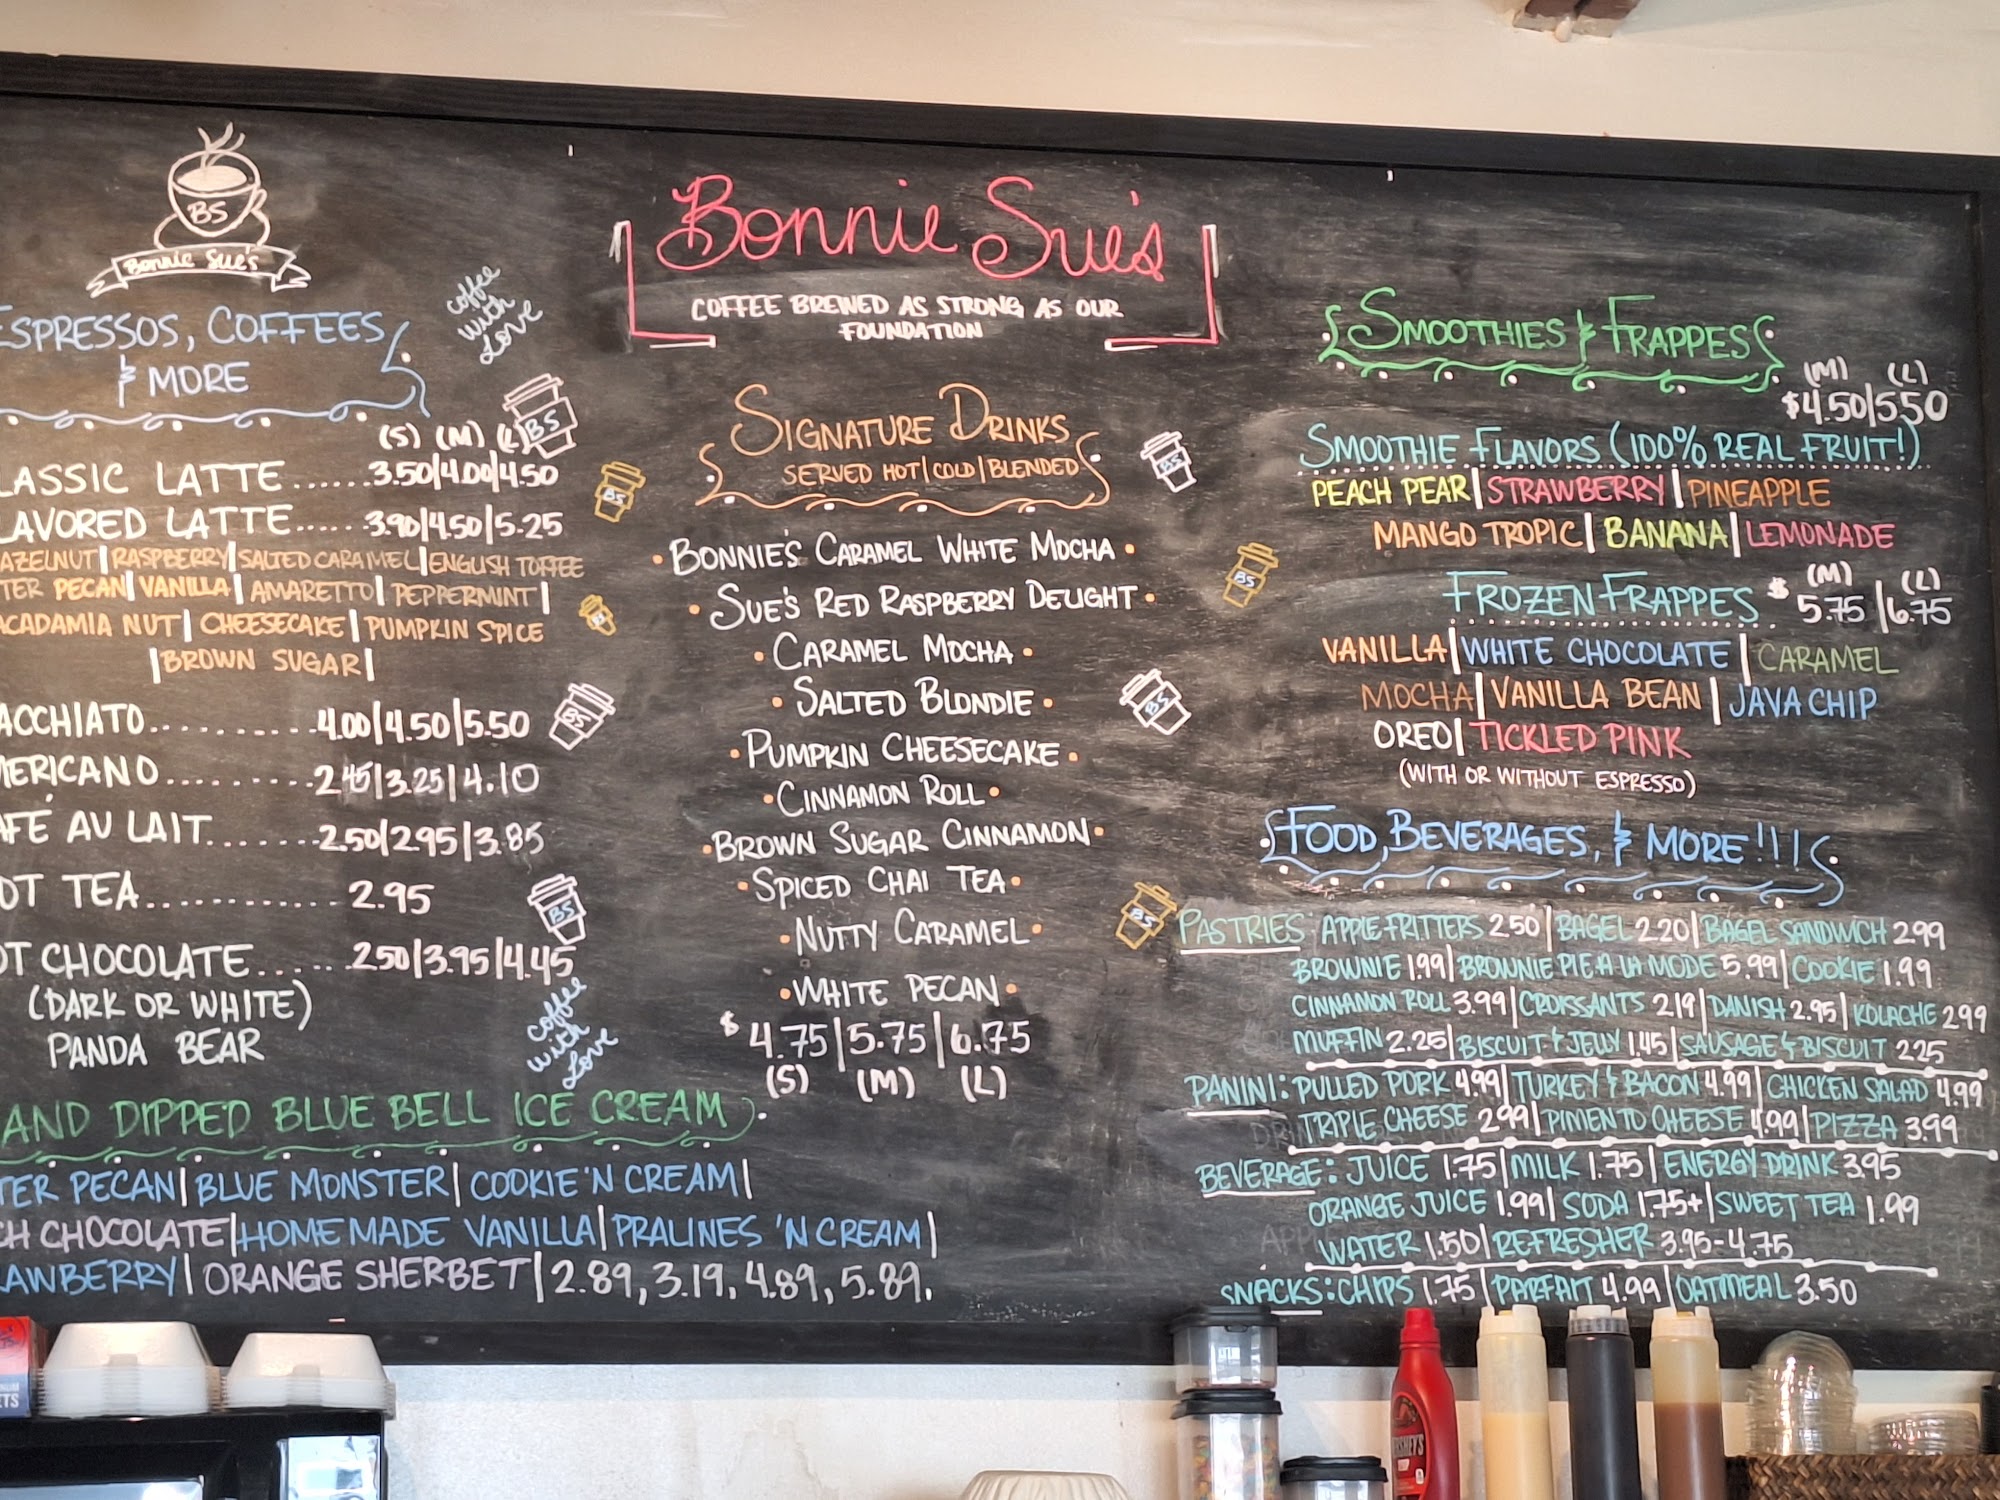 BS
Bonnie Sue's
ESPRESSOS, COFFEES
& MORE
coffee
with
Love
(S) (M) (L)
LASSIC LATTE......3.50|4.00|4.50
LAVORED LATTE......3.90|4.50|5.25
AZELNUT|RASPBERRY|SALTED CARAMEL|ENGLISH TOFFEE
TER PECAN|VANILLA|AMARETTO|PEPPERMINT|
ACADAMIA NUT|CHEESECAKE|PUMPKIN SPICE
|BROWN SUGAR|
ACCHIATO..........4.00|4.50|5.50
MERICANO.........2.45|3.25|4.10
AFÉ AU LAIT........2.50|2.95|3.85
OT TEA............. 2.95
OT CHOCOLATE.......2.50|3.95|4.45
(DARK OR WHITE)
PANDA BEAR
coffee
with
Love
AND DIPPED BLUE BELL ICE CREAM
TER PECAN|BLUE MONSTER|COOKIE 'N CREAM|
CH CHOCOLATE|HOMEMADE VANILLA|PRALINES 'N CREAM|
AWBERRY|ORANGE SHERBET|2.89, 3.19, 4.89, 5.89.
Bonnie Sue's
COFFEE BREWED AS STRONG AS OUR
FOUNDATION
SIGNATURE DRINKS
SERVED HOT|COLD|BLENDED
• BONNIE'S CARAMEL WHITE MOCHA •
• SUE'S RED RASPBERRY DELIGHT •
• CARAMEL MOCHA •
• SALTED BLONDIE •
• PUMPKIN CHEESECAKE •
• CINNAMON ROLL •
• BROWN SUGAR CINNAMON •
• SPICED CHAI TEA •
• NUTTY CARAMEL •
• WHITE PECAN •
$ 4.75|5.75|6.75
(S) (M) (L)
BS
BS
BS
BS
BS
BS
BS
BS
SMOOTHIES & FRAPPES
(M) (L)
$4.50|5.50
SMOOTHIE FLAVORS (100% REAL FRUIT!)
PEACH PEAR|STRAWBERRY|PINEAPPLE
MANGO TROPIC|BANANA|LEMONADE
(M) (L)
FROZEN FRAPPES $ 5.75|6.75
VANILLA|WHITE CHOCOLATE|CARAMEL
MOCHA|VANILLA BEAN|JAVA CHIP
OREO|TICKLED PINK
(WITH OR WITHOUT ESPRESSO)
FOOD, BEVERAGES, & MORE!!!
PASTRIES: APPLE FRITTERS 2.50|BAGEL 2.20|BAGEL SANDWICH 2.99
BROWNIE 1.99|BROWNIE PIE A LA MODE 5.99|COOKIE 1.99
CINNAMON ROLL 3.99|CROISSANTS 2.19|DANISH 2.95|KOLACHE 2.99
MUFFIN 2.25|BISCUIT & JELLY 1.45|SAUSAGE & BISCUIT 2.25
PANINI: PULLED PORK 4.99|TURKEY & BACON 4.99|CHICKEN SALAD 4.99
TRIPLE CHEESE 2.99|PIMENTO CHEESE 4.99|PIZZA 3.99
BEVERAGE: JUICE 1.75|MILK 1.75|ENERGY DRINK 3.95
ORANGE JUICE 1.99|SODA 1.75+|SWEET TEA 1.99
WATER 1.50|REFRESHER 3.95-4.75
SNACKS: CHIPS 1.75|PARFAIT 4.99|OATMEAL 3.50
HERSHEY'S